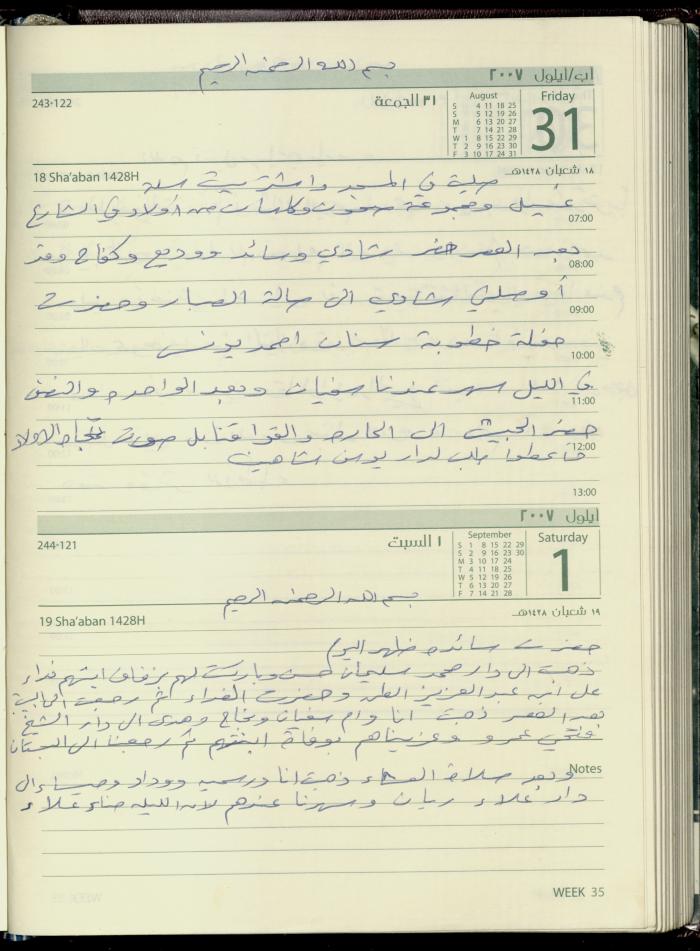 بسم الله الرحمن الرحيم
آب/ايلول ٢٠٠٧
243-122
٣١ الجمعة
August
S 4 11 18 25
S 5 12 19 26
M 6 13 20 27
T 7 14 21 28
W 1 8 15 22 29
T 2 9 16 23 30
F 3 10 17 24 31
Friday
31
18 Sha'aban 1428H
١٨ شعبان ١٤٢٨هـ
صليت في المسجد واشتريت سلة
غسيل ومجموعة صحون وكاسات من أولاد في الشارع
07:00
بعد العصر حضر شادي وسائد ووديع وكفاح وقد
08:00
أوصلني شادي الى صالة الصبار وحضرت
09:00
حفلة خطوبة سنان احمد يونس
10:00
في الليل سهر عندنا سفيان وبعد الواحدة والنصف
11:00
حضر الجيش الى الحارة والقوا قنابل صوت تجاه الاولاد
12:00
لدار يوسف شاهين
13:00
ايلول ٢٠٠٧
244-121
١ السبت
September
S 1 8 15 22 29
S 2 9 16 23 30
M 3 10 17 24
T 4 11 18 25
W 5 12 19 26
T 6 13 20 27
F 7 14 21 28
Saturday
1
بسم الله الرحمن الرحيم
19 Sha'aban 1428H
١٩ شعبان ١٤٢٨هـ
حضرت سائدة ظهر اليوم
ذهبت الى دار محمد سليمان حسن وباركت لهم بزفاف ابنتهم فداء
على ابن عبد العزيز وحضرت الغداء ثم رجعت الى البيت
بعد العصر ذهبت انا وام سفيان ونجاح وهدى الى دار الشيخ
فتحي عمرو وعزيناهم بوفاة ابنتهم ثم رجعنا الى البستان
Notes
وبعد صلاة العشاء ذهبت انا ورسمية ووداد وميساء الى
دار علاء ريان وسهرنا عندهم لأن الليلة حناء علاء
WEEK 35